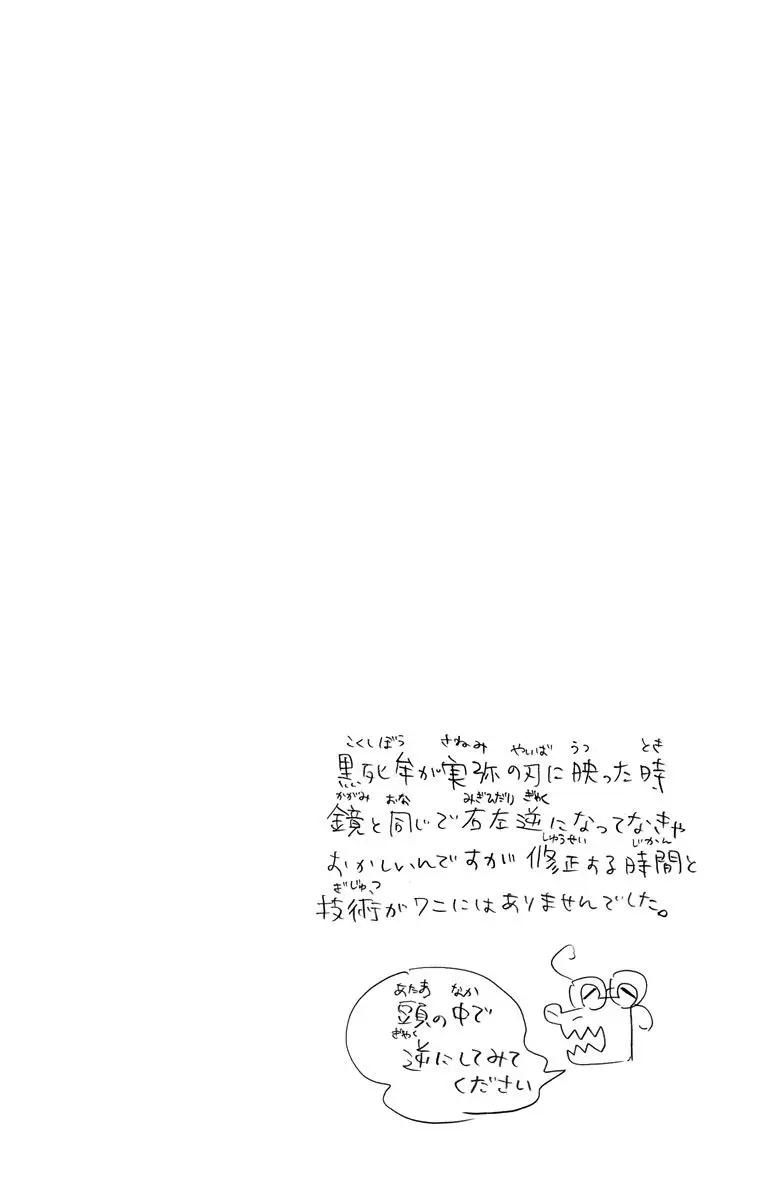 黒死牟が実弥の刃に映った時
鏡と同じで右左逆になってなきゃ
おかしいんですが修正する時間と
技術がワニにはありませんでした。
頭の中で
逆にしてみて
ください